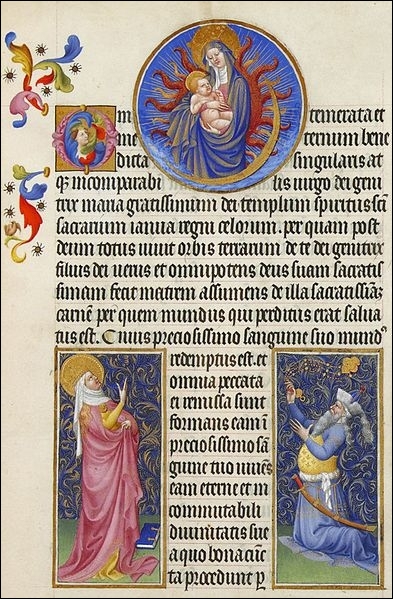 O in temerata et
ine ternum bene
dicta singularis at
qꝫ incomparabi lis uirgo dei geni
trix maria gratissimum dei templum spiritus sc̄i
sacrarium ianua regni celorum. per quam post
deum totus uiuit orbis terrarum de te dei genitrix
filius dei uerus et omnipotens deus suam sacratis
simam fecit metrem assumens de illa sacratissīā
carnē per quem mundus qui perditus erat salua
tus est. Cuius preciosissimo sanguine suo mundꝰ
redemptus est. et
omnia peccata
ei remissa sunt
formans eam ī
preciosissimo sā
guine tuo
eam eterne et in
commutabili
diuinitatis sue
a quo bona cūc
ta procedunt